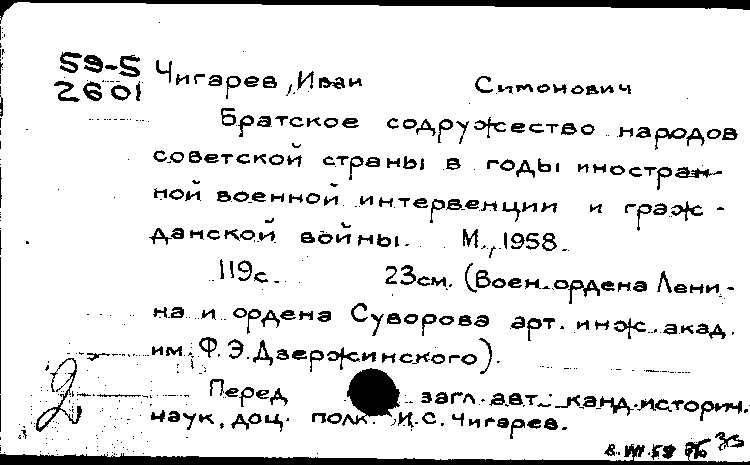 59-5
2601
Чигарев, Иван Симонович
Братское содружество народов
советской страны в годы иностран-
ной военной интервенции и граж-
данской войны. М., 1958.
119с. 23см. (Воен. ордена Лени-
на и ордена Суворова арт. инж. акад.
им. Ф.Э.Дзержинского).
Перед загл. авт.: канд. историч.
наук, доц. полк. И.С. Чигарев.
2